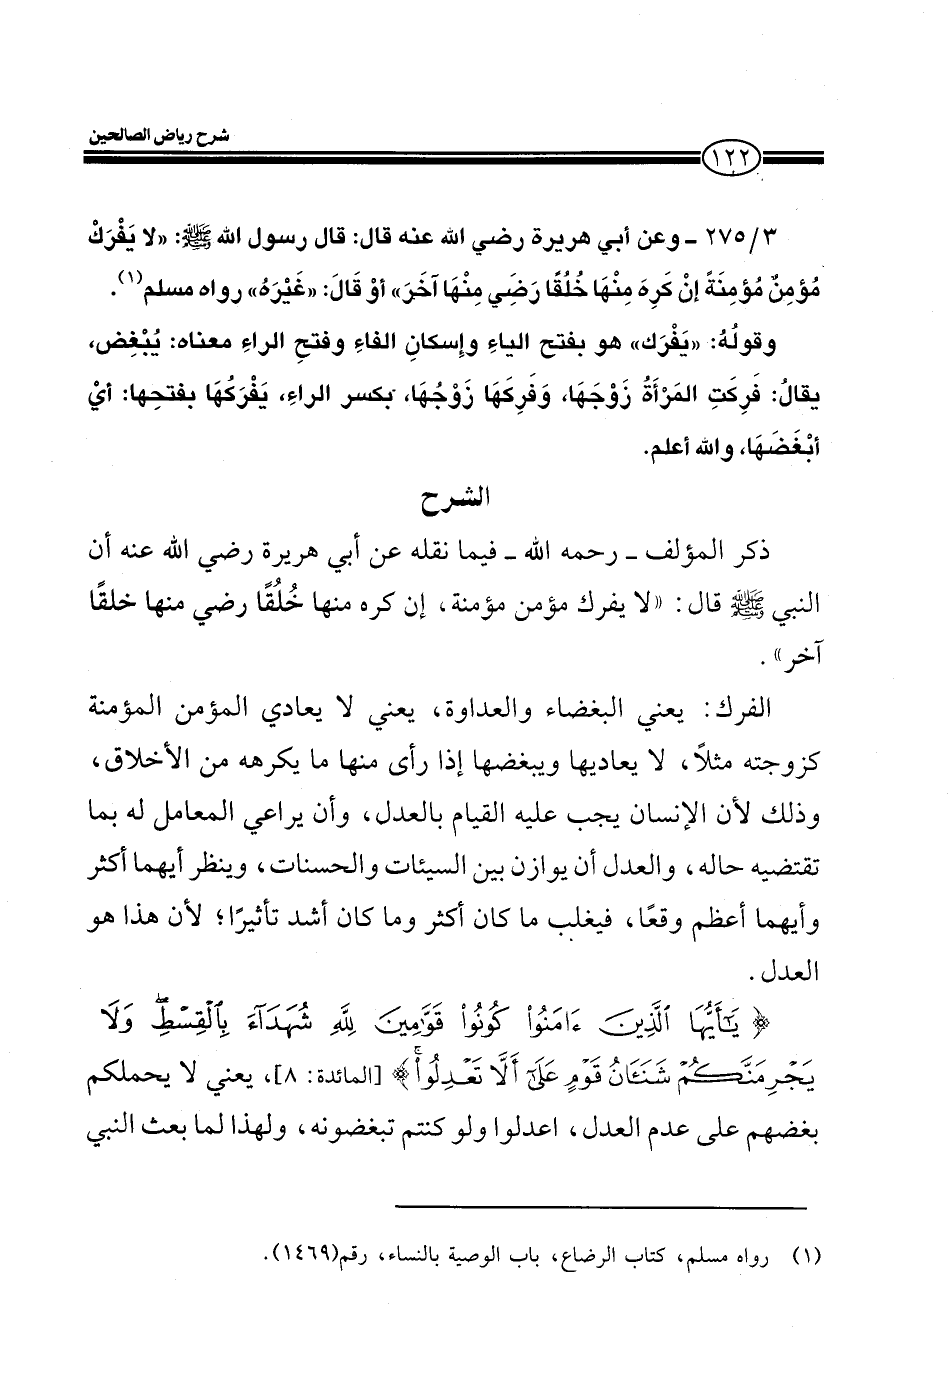 شرح رياض الصالحين
١٢٢
٢٧٥/٣ ـ وعن أبي هريرة رضي الله عنه قال: قال رسول الله ﷺ: «لا يَفْرَكْ
مُؤمِنٌ مُؤمِنَةً إنْ كَرِهَ مِنْهَا خُلُقًا رَضِي مِنْهَا آخَرَ» أوْ قَالَ: «غَيْرَهُ» رواه مسلم(١).
وقولُهُ: «يَفْرَك» هو بفتح الياءِ وإسكانِ الفاءِ وفتحِ الراءِ معناه: يُبْغِض،
يقالُ: فَرِكَتِ المَرْأةُ زَوْجَهَا، وَفَرِكَهَا زَوْجُهَا، بكسر الراءِ، يَفْرَكُهَا بفتحِها: أيْ
أبْغَضَهَا، والله أعلم.
الشرح
ذكر المؤلف ـ رحمه الله ـ فيما نقله عن أبي هريرة رضي الله عنه أن
النبي ﷺ قال: «لا يفرك مؤمن مؤمنة، إن كره منها خُلُقًا رضي منها خلقًا
آخر».
الفرك: يعني البغضاء والعداوة، يعني لا يعادي المؤمن المؤمنة
كزوجته مثلاً، لا يعاديها ويبغضها إذا رأى منها ما يكرهه من الأخلاق،
وذلك لأن الإنسان يجب عليه القيام بالعدل، وأن يراعي المعامل له بما
تقتضيه حاله، والعدل أن يوازن بين السيئات والحسنات، وينظر أيهما أكثر
وأيهما أعظم وقعًا، فيغلب ما كان أكثر وما كان أشد تأثيرًا؛ لأن هذا هو
العدل.
﴿ يَٰٓأَيُّهَا ٱلَّذِينَ ءَامَنُوا۟ كُونُوا۟ قَوَّٰمِينَ لِلَّهِ شُهَدَآءَ بِٱلْقِسْطِ ۖ وَلَا
يَجْرِمَنَّكُمْ شَنَـَٔانُ قَوْمٍ عَلَىٰٓ أَلَّا تَعْدِلُوا۟ ۚ ﴾ [المائدة: ٨]، يعني لا يحملكم
بغضهم على عدم العدل، اعدلوا ولو كنتم تبغضونه، ولهذا لما بعث النبي
(١) رواه مسلم، كتاب الرضاع، باب الوصية بالنساء، رقم(١٤٦٩).